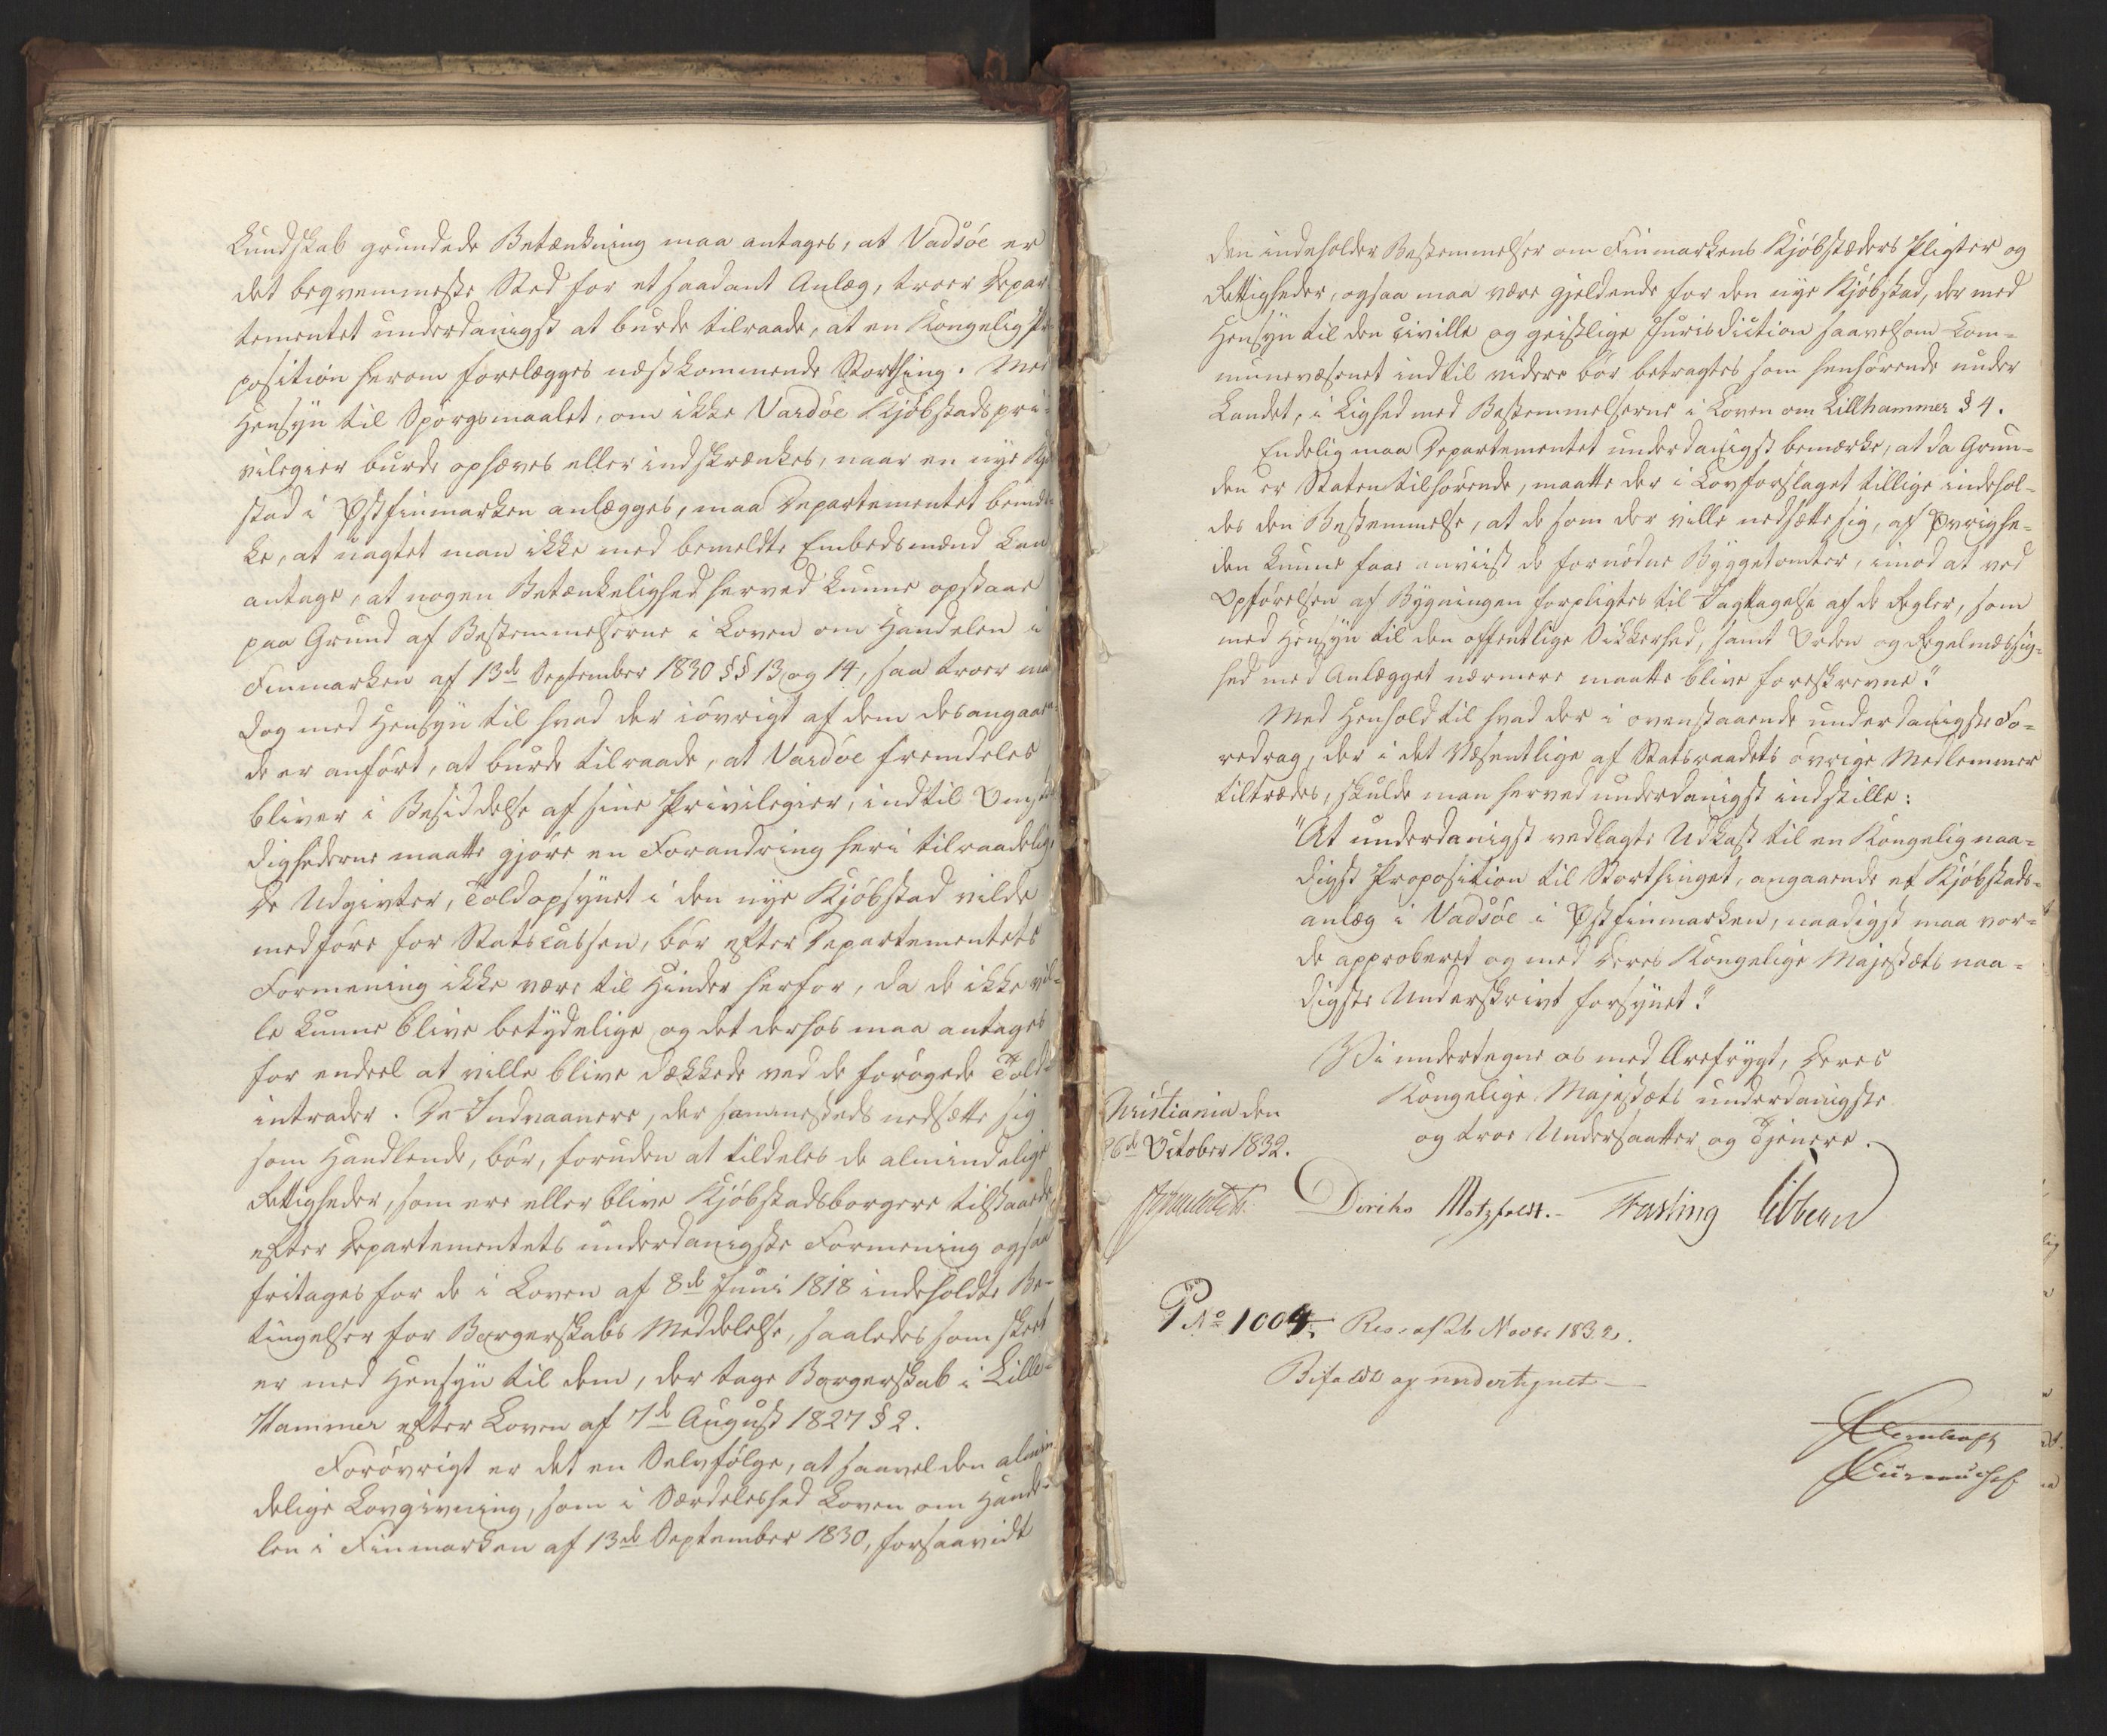 Kundskab grundede Betænkning maa antages, at Vadsöe er
det beqvemmeste Sted for et saadant Anlæg, troer Depar-
tementet underdanigst at burde tilraade, at en Kongelig Pro-
position herom forelægges næstkommende Storthing. Med
Hensyn til Spörgsmaalet, om ikke Vardöe Kjöbstadspri-
vilegier burde ophæves eller indskrænkes, naar en nye Kjöb-
stad i Østfinmarken anlægges, maa Departementet bemær-
ke, at uagtet man ikke med bemeldte Embedsmænd kan
antage, at nogen Betænkelighed herved kunne opstaae
paa Grund af Bestemmelserne i Loven om Handelen i
Finmarken af 13de September 1830 §§ 13 og 14, saa troer man
dog med Hensyn til hvad der iövrigt af dem desangaaen-
de er anfört, at burde tilraade, at Vardöe fremdeles
bliver i Besiddelse af sine Privilegier, indtil Omstæn-
dighederne maatte gjöre en Forandring heri tilraadelig.
De Udgivter, Toldopsynet i den nye Kjöbstad vilde
medföre for Statscassen, bör efter Departementets
Formening ikke være til Hinder herfor, da de ikke vil-
le kunne blive betydelige og det derhos maa antages
for endeel at ville blive dækkede ved de forögede Told-
intrader. De Indvaanere, der sammesteds nedsætte sig
som Handlende, bör, foruden at tildeles de almindelige
Rettigheder, som ere eller blive Kjöbstadsborgere tilstaaede,
efter Departementets underdanigste Formening ogsaa
fritages for de i Loven af 8de Juni 1818 indeholdte Be-
tingelser for Borgerskabs Meddelelse, saaledes som skeet
er med Hensyn til dem, der tage Borgerskab i Lille-
Hammer efter Loven af 7de August 1827 § 2.
Forövrigt er det en Selvfölge, at saavel den almin-
delige Lovgivning, som i Særdeleshed Loven om Hande-
len i Finmarken af 13de September 1830, forsaavidt
den indeholder Bestemmelser om Finmarkens Kjöbstæders Pligter og
Rettigheder, ogsaa maa være gjeldende for den nye Kjöbstad, der med
Hensyn til den civille og geistlige Jurisdiction saavelsom Com-
munevæsenet indtil videre bör betragtes som henhörende under
Landet, i Lighed med Bestemmelserne i Loven om Lillhammer § 4.
Endelig maa Departementet underdanigst bemærke, at da Grun-
den er Staten tilhörende, maatte der i Lovforslaget tillige indehol-
des den Bestemmelse, at de som der ville nedsætte sig, af Øvrighe-
den kunne faae anviist de fornödne Byggetomter, imod at ved
Opförelsen af Bygningen forpligtes til Iagttagelse af de Regler, som
med Hensyn til den offentlige Sikkerhed, samt Orden og Regelmæssig-
hed med Anlægget nærmere maatte blive foreskrevne."
Med Henhold til hvad der i ovenstaaende underdanigste Fo-
redrag, der i det Væsentlige af Statsraadets övrige Medlemmer
tiltrædes, skulde man herved underdanigst indstille:
"At underdanigst vedlagte Udkast til en Kongelig naa-
digst Proposition til Storthinget, angaaende et Kjöbstads-
anlæg i Vadsöe i Østfinmarken, naadigst maa vor-
de approberet og med Deres Kongelige Majestæts naa-
digste Underskrivt forsynet."
Vi undertegne os med Ærefrygt, Deres
Kongelige Majestæts underdanigste
og troe Undersaatter og Tjenere.
Christiania den
26de October 1832.
Diriks Motzfeldt. Fasting Sibbern
P No 1004. Res. af 26 Novbr 1832.
Bifaldt og undertegnet